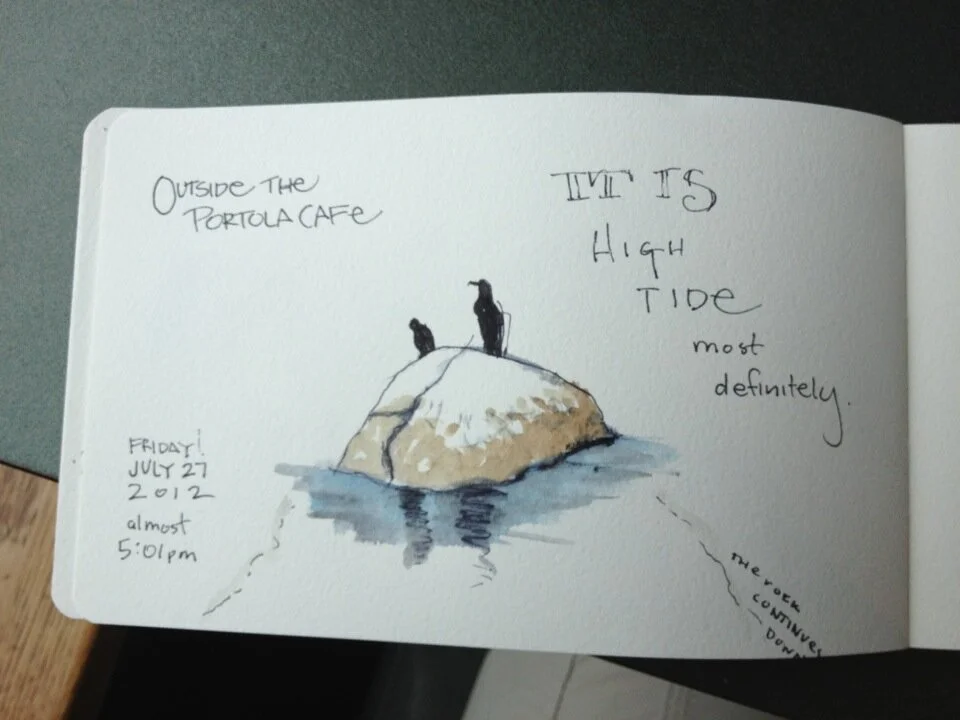 OUTSIDE THE
PORTOLA CAFe
IT IS
HIGH
TIDe
most
definitely.
FRIDAY!
JULY 27
2012
almost
5:01pm
THe ROCK
CONTINUES
DOWN